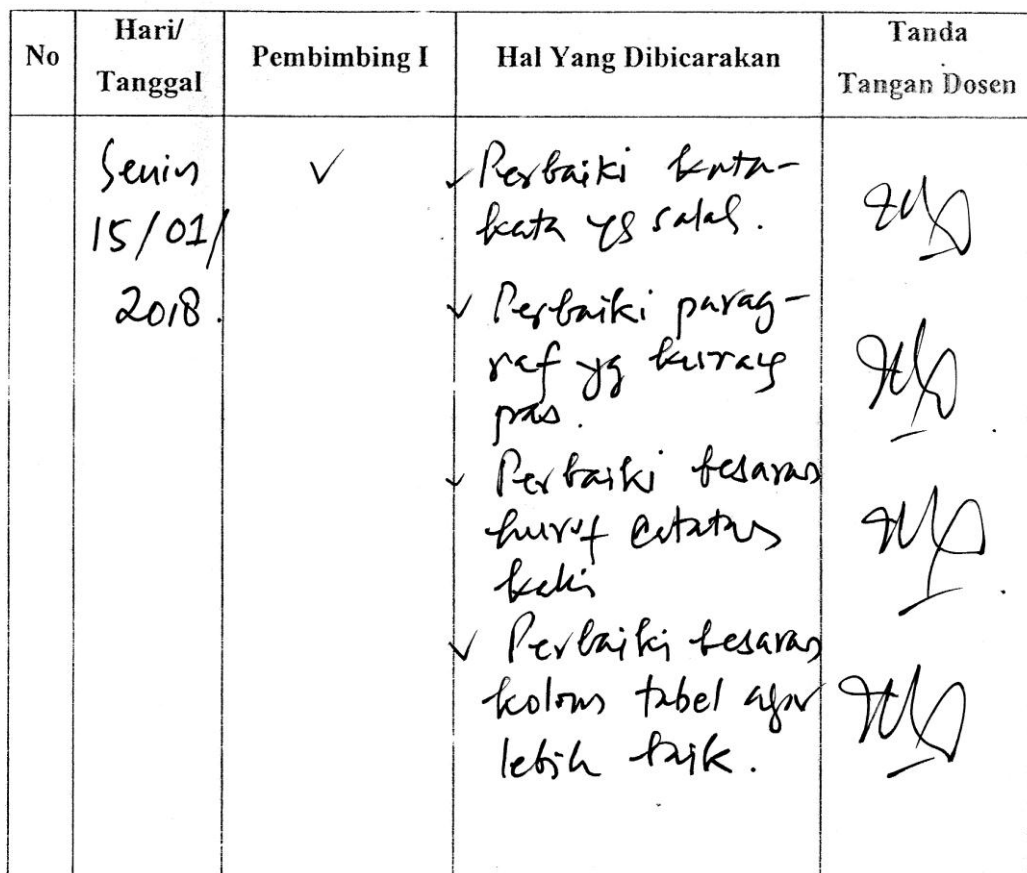 No
Hari/
Tanggal
Pembimbing I
Hal Yang Dibicarakan
Tanda
Tangan Dosen
Senin
15/01/
2018.
✓
✓ Perbaiki kata-
kata yg salah.
✓ Perbaiki parag-
raf yg kurang
pas.
✓ Perbaiki besaran
huruf catatan
kaki
✓ Perbaiki besaran
kolom tabel agar
lebih baik.